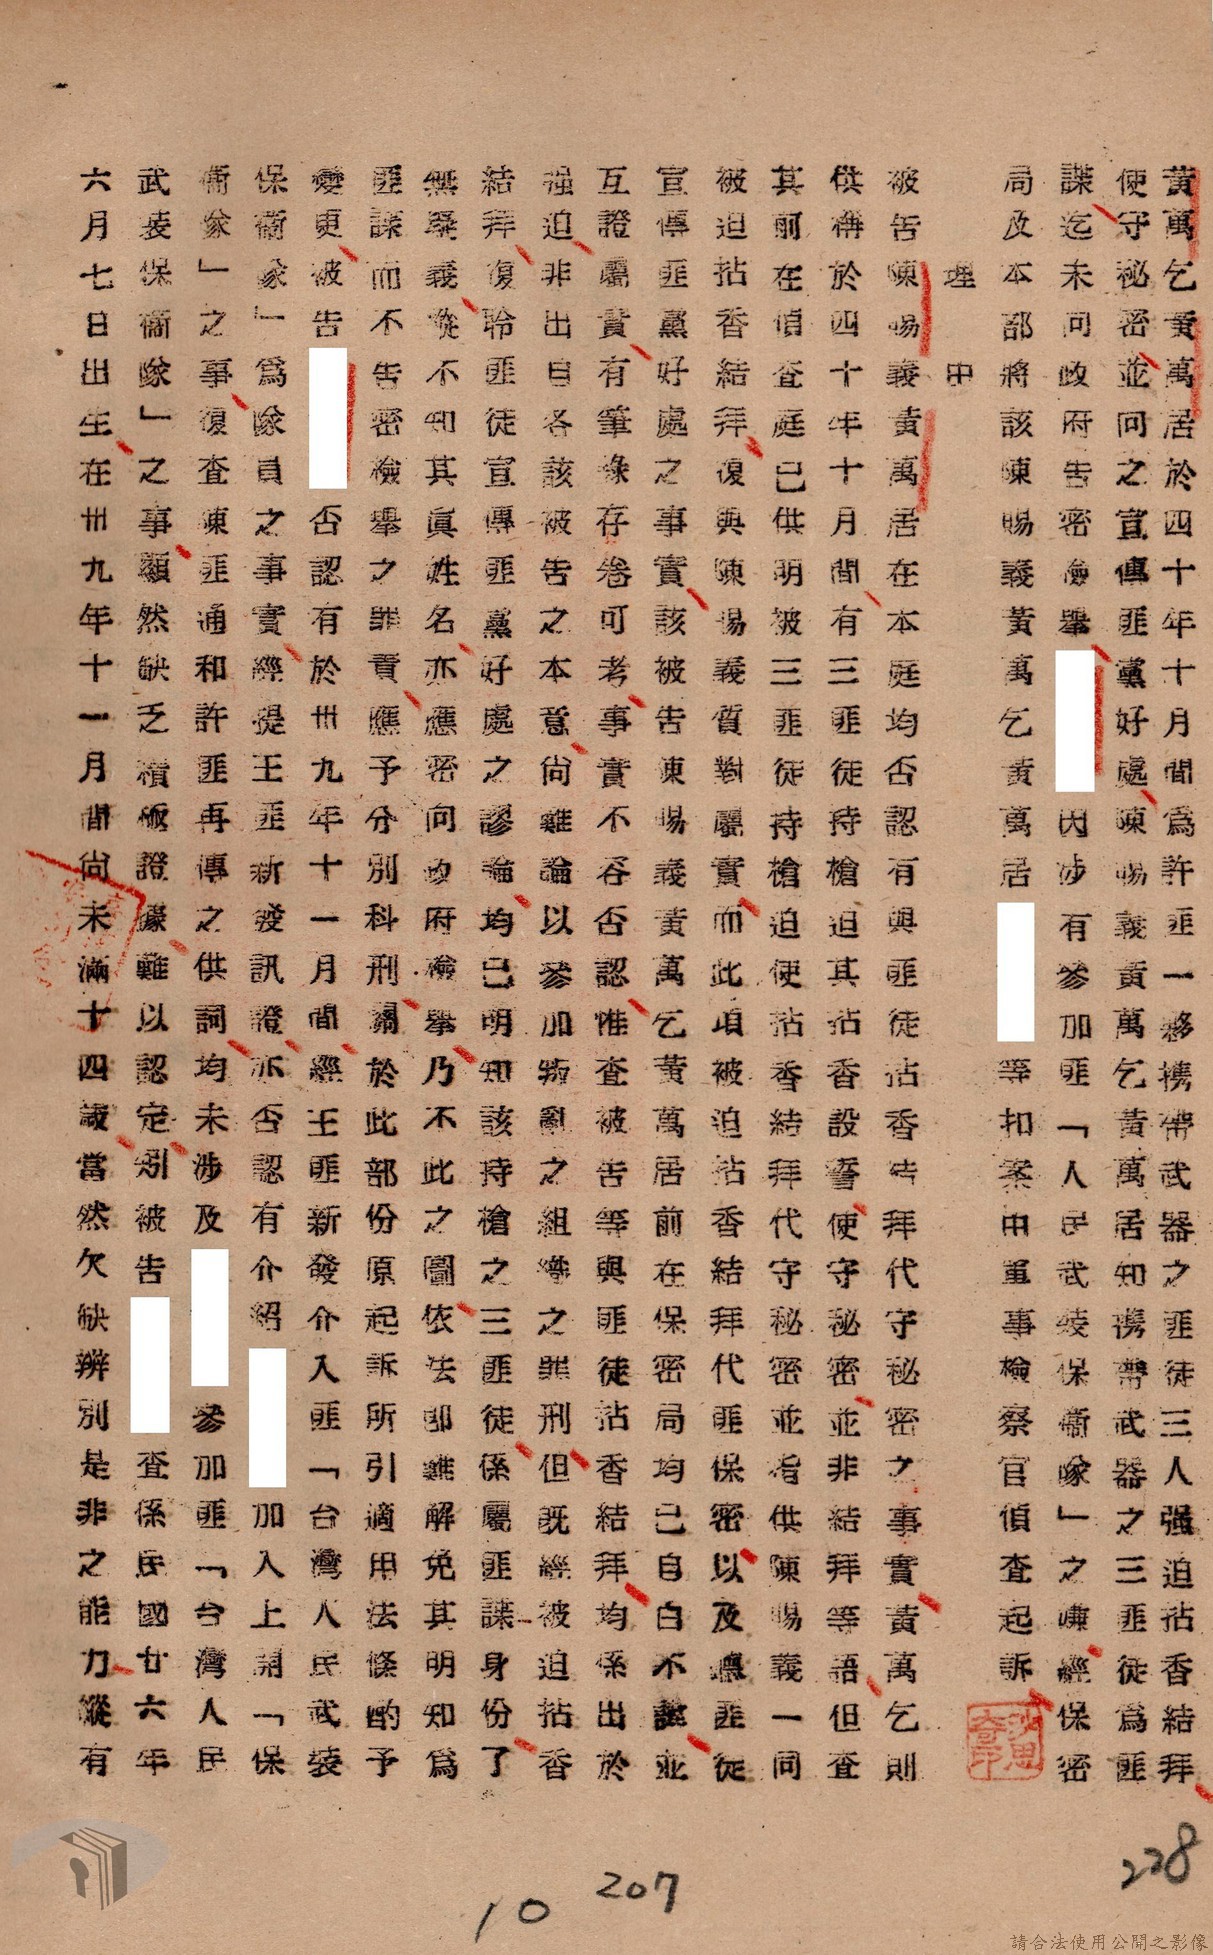 黃萬乞黃萬居於四十年十月間為許匪一移携帶武器之匪徒三人强迫拈香結拜
使守秘密並向之宣傳匪黨好處陳賜義黃萬乞黃萬居知携帶武器之三匪徒為匪
諜迄未向政府告密檢舉 因涉有參加匪「人民武裝保衞隊」之嫌經保密
局及本部將該陳賜義黃萬乞黃萬居 等扣案由軍事檢察官偵查起訴
理由
被告陳賜義黃萬居在本庭均否認有與匪徒拈香結拜代守秘密之事實黃萬乞則
供稱於四十年十月間有三匪徒持槍迫其拈香設誓使守秘密並非結拜等語但查
其前在偵查庭已供明被三匪徒持槍迫使拈香結拜代守秘密並指供陳賜義一同
被迫拈香結拜復與陳賜義質對屬實而此項被迫拈香結拜代匪保密以及聽匪徒
宣傳匪黨好處之事實該被告陳賜義黃萬乞黃萬居前在保密局均已自白不諱並
互證屬實有筆錄存卷可考事實不容否認惟查被告等與匪徒拈香結拜均係出於
强迫非出自各該被告之本意尚難論以參加叛亂之組織之罪刑但既經被迫拈香
結拜復聆匪徒宣傳匪黨好處之謬論均已明知該持槍之三匪徒係屬匪諜身份了
無疑義縱不知其眞姓名亦應密向政府檢舉乃不此之圖依法卽難解免其明知為
匪諜而不告密檢舉之罪責應予分別科刑關於此部份原起訴所引適用法條酌予
變更被告 否認有於卅九年十一月間經王匪新發介入匪「台灣人民武裝
保衞隊」為隊員之事實經提王匪新發訊證亦否認有介紹 加入上開「保
衞隊」之事復查陳匪通和許匪再傳之供詞均未涉及 參加匪「台灣人民
武裝保衞隊」之事顯然缺乏積極證據難以認定矧被告 查係民國廿六年
六月七日出生在卅九年十一月間尚未滿十四歲當然欠缺辨別是非之能力縱有
228
207
10
請合法使用公開之影像